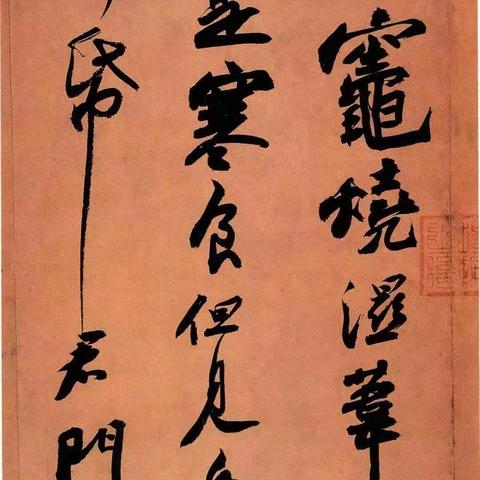 竈燒濕葦
是寒食但見
帋君門